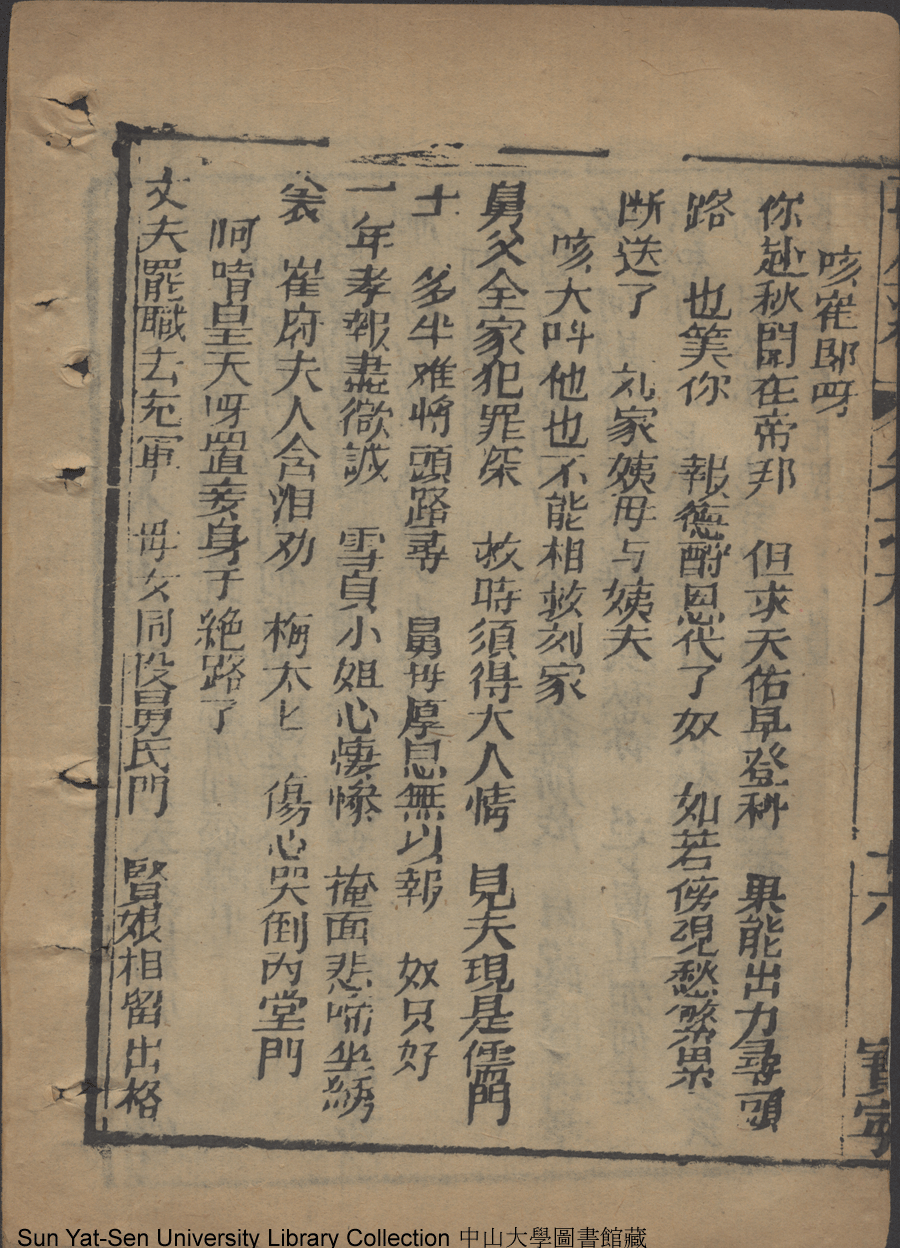 咳崔郎呀
你赴秋闈在帝邦 但求天佑早登科 果能出力尋頭
路 也笑你 報德酧恩代了奴 如若傍現愁縈累
断送了 刘家姨母与姨夫
咳大呌他也不能相救刘家
舅父全家犯罪深 救時須得大人情 見夫現是儒門
士 多半难將頭路尋 舅母厚恩無以報 奴只好
一年孝報盡微誠 雪貞小姐心悽慘 掩面悲啼坐綉
裳 崔府夫人含泪劝 梅太匕 傷心哭倒內堂門
阿唷皇天呀置妾身于絶路了
丈夫罷職去充軍 毋女同投舅氏門 賢娘相留出格
廿六
Sun Yat-Sen University Library Collection 中山大學圖書館藏